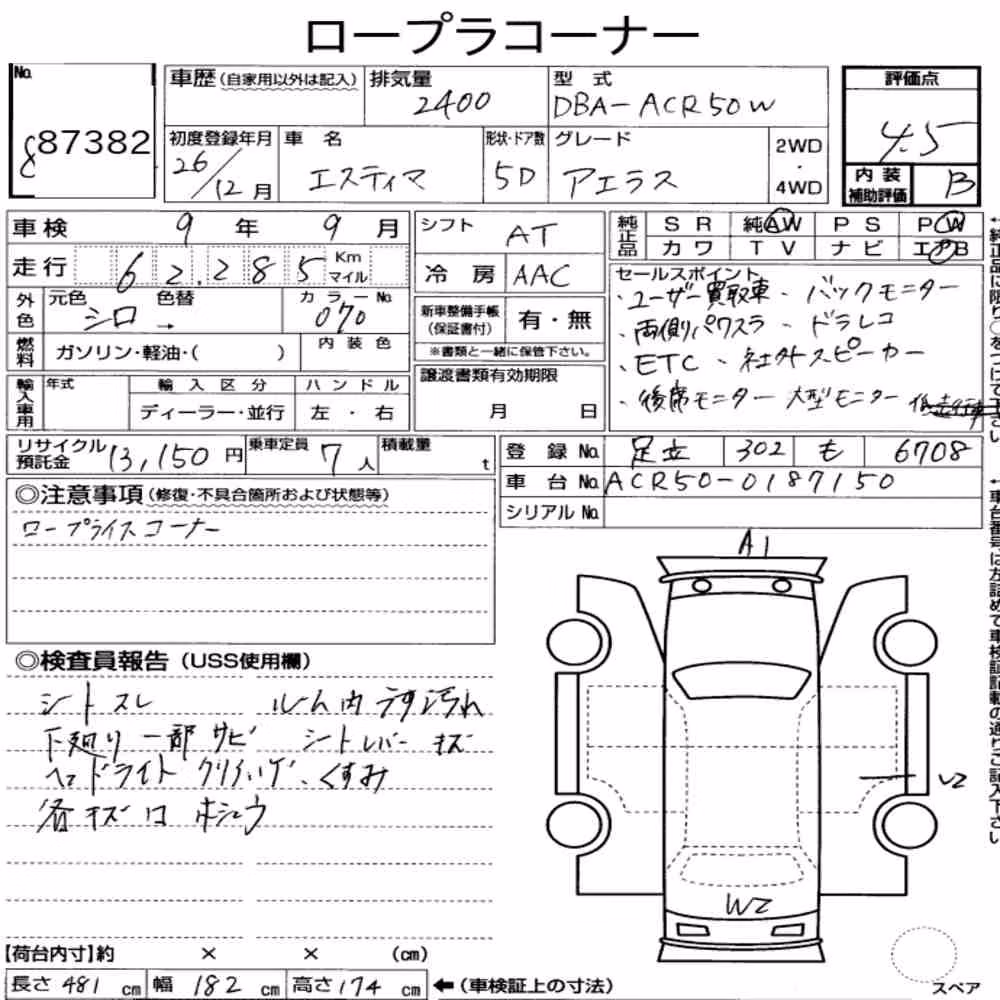 ロープラコーナー
No.
87382
車歴 (自家用以外は記入)
排気量
2400
型式
DBA-ACR50W
評価点
4.5
内装補助評価
B
初度登録年月
26/12月
車名
エスティマ
形状・ドア数
5D
グレード
アエラス
2WD・4WD
車検 9年 9月
走行 62,285 Km マイル
外色 元色 シロ 色替 → カラーNo. 070
燃料 ガソリン・軽油・( ) 内装色
輸入車用 年式 輸入区分 ハンドル
ディーラー・並行 左・右
シフト AT
冷房 AAC
新車整備手帳(保証書付) 有・無
※書類と一緒に保管下さい。
譲渡書類有効期限
月 日
純正品 SR 純AW PS PW
カワ TV ナビ エアB
セールスポイント
・ユーザー買取車 ・バックモニター
・両側パワスラ ・ドラレコ
・ETC ・社外スピーカー
・後席モニター 大型モニター
←純正品に限り○をつけて下さい
リサイクル預託金 13,150円 乗車定員 7人 積載量 t
登録No. 足立 302 も 6708
車台No. ACR50-0187150
シリアルNo.
←車台番号は左詰めで車検証記載の通りご記入下さい
◎注意事項 (修復・不具合箇所および状態等)
ロープライスコーナー
A1
◎検査員報告 (USS使用欄)
シートスレ ルーム内うす汚れ
下廻り一部サビ シートレバーキズ
ヘッドライトクリーニング、くすみ
各キズ凹ホシュウ
W2
W2
【荷台内寸】約 × × (cm)
長さ 481 cm 幅 182 cm 高さ 174 cm ←(車検証上の寸法)
スペア